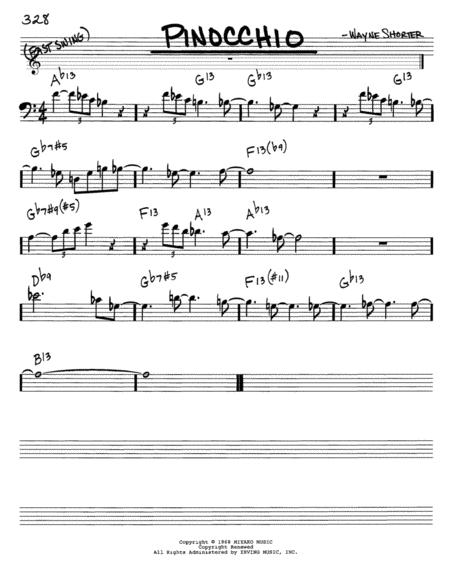 328
PINOCCHIO
(FAST SWING)
-WAYNE SHORTER
Ab13 G13 Gb13 G13
Gb7#5 F13(b9)
Gb7#9(#5) F13 A13 Ab13
Db9 Gb7#5 F13(#11) Gb13
B13
Copyright © 1968 MIYAKO MUSIC
Copyright Renewed
All Rights Administered by IRVING MUSIC, INC.